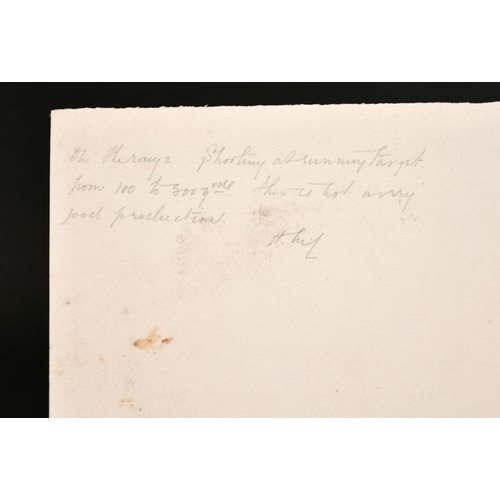 the Range Shooting at running target.
from 100 to 300 yds. This is not a very
good production.